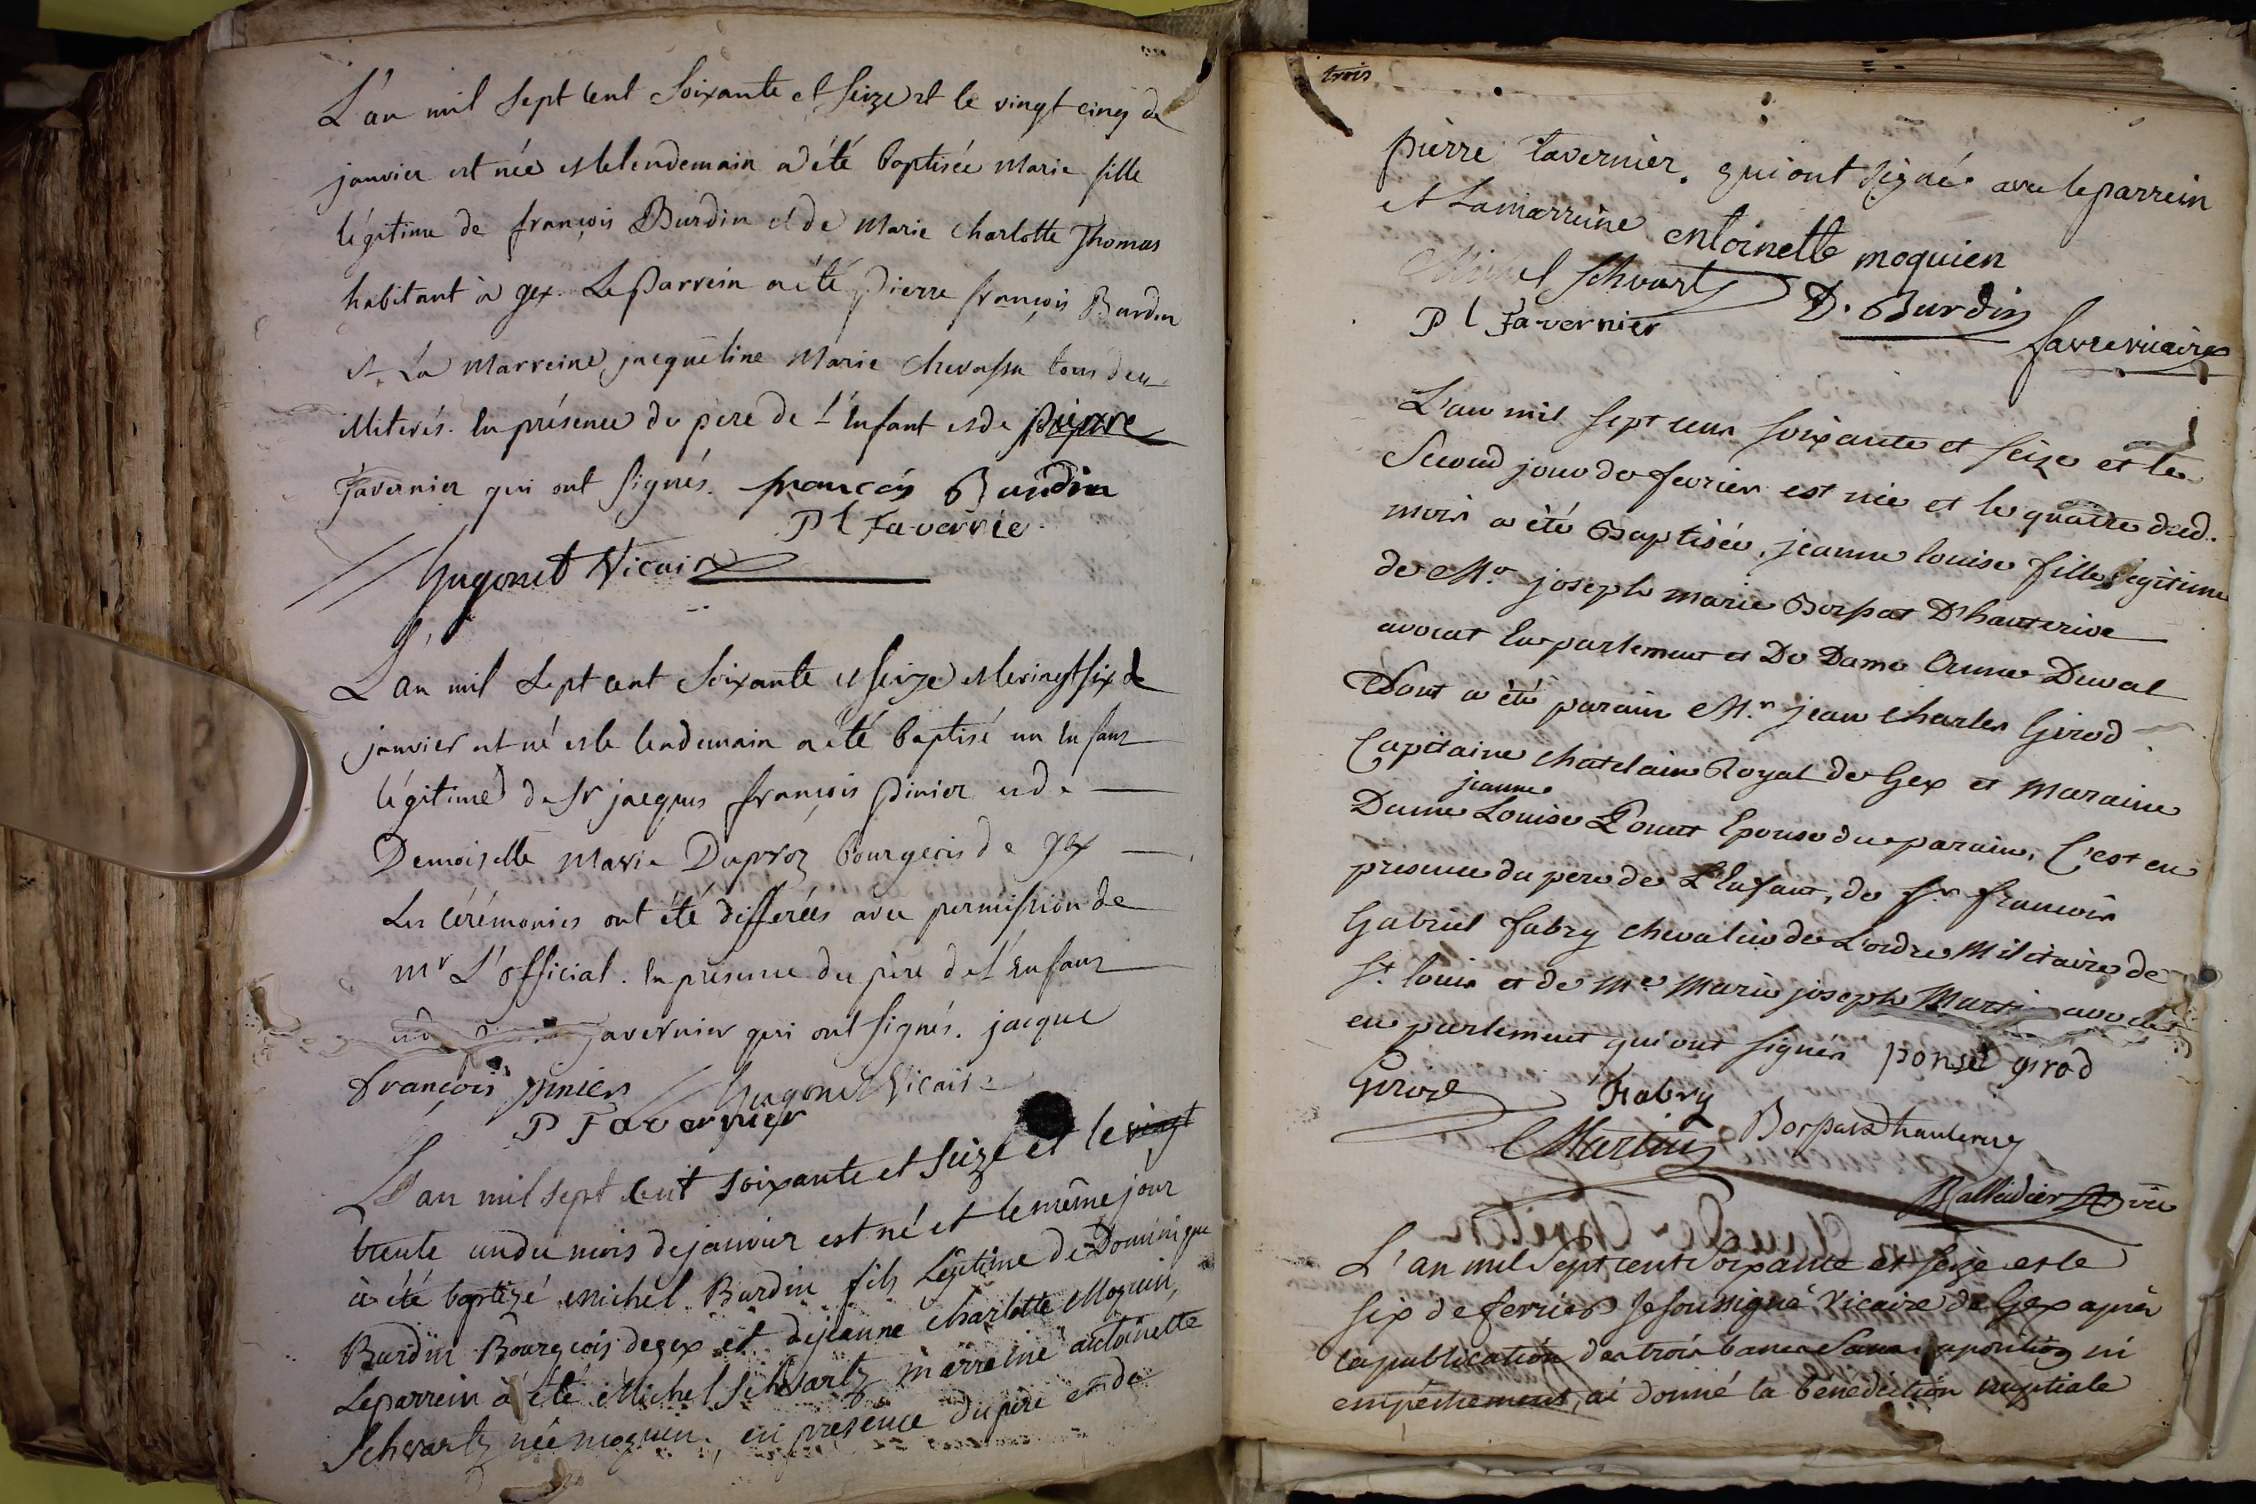 L'an mil sept cent soixante et seize et le vingt cinq de
janvier est née et le lendemain a été baptisée Marie fille
légitime de françois Burdin et de Marie Charlotte Thomas
habitant à gex. Le Parrein a été pierre françois Burdin
et La Marreine jacqueline Marie Chevassu tous deux
illiterés. En présence du pere de L'Enfant et de pierre
Tavernier qui ont signés. françois Burdin
P l Tavernie
hugonet Vicaire
L'an mil sept cent soixante et seize et le vingt six de
janvier est né et le lendemain a été baptisé un Enfant
légitime de Sr jacques françois Pinier et de
Demoiselle Marie Duproz bourgeois de gex
Les cérémonies ont été differées avec permission de
Mr L'official. En présence du père de l'Enfant
et de Tavernier qui ont signés. jacque
françois pinier hugonet Vicaire
P Tavernier
L'an mil sept cent soixante et seize et le vingt
trente un du mois de janvier est né et le même jour
à été baptizé Michel Burdin fils Légitime de Dominique
Burdin Bourgeois de gex et de jeanne charlotte Moquin,
Le parrein à été Michel Schwartz marreine antoinette
Schwartz née moquin. en presence du pere et de
trois
pierre tavernier. qui ont signé avec le parrein
et La marreine entoinette moquien
Michel Schvartz D. Burdin
P l Tavernier favre vicaire
L'an mil sept cens soixante et seize et le
Second jour de fevrier est née et le quatre dud.
mois a été Baptisée, jeanne louise fille légitime
de Mr joseph marie Borssat D'hauterive
avocat En parlement et De Dame Anne Duval
Dont a été parain Mr jean charles Girod
Capitaine chatelain Royal de Gex et maraine
jeanne
Dame Louise Ponset Epouse du parain, C'est en
presence du pere de L'Enfant, de Sr francois
Gabriel fabry chevalier de L'ordre Militaire de
St louis et de Me Marie joseph Martin avocat
en parlement qui ont signer ponset girod
Girod Fabry
Martin Borssat Dhauterive
Balleidier vic
L'an mil Sept cent Soixante et Seize et le
six de fevrier Je soussigné Vicaire de Gex après
la publication des trois bancs sans opposition ni
empêchement, ai donné la bénédiction nuptiale